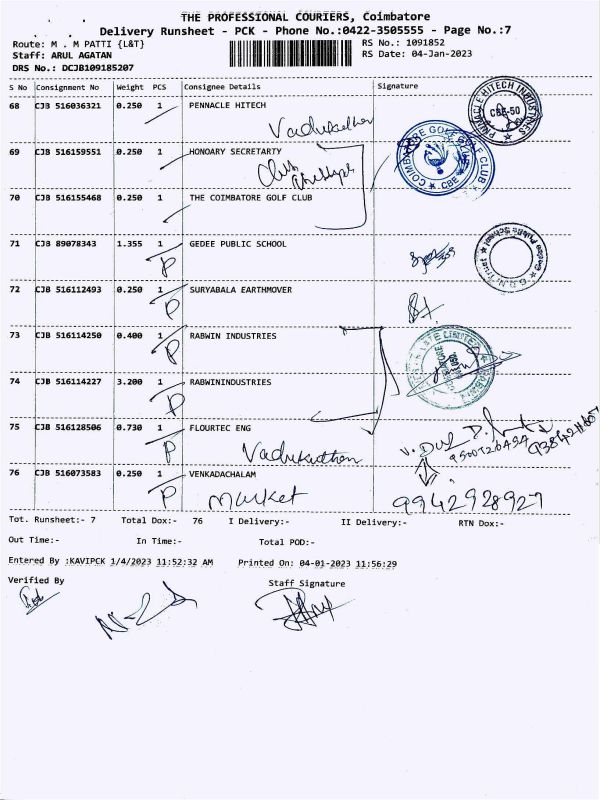 THE PROFESSIONAL COURIERS, Coimbatore
Delivery Runsheet - PCK - Phone No.:0422-3505555 - Page No.:7
Route: M . M PATTI {L&T} RS No.: 1091852
Staff: ARUL AGATAN RS Date: 04-Jan-2023
DRS No.: DCJB109185207
S No Consignment No Weight PCS Consignee Details Signature
68 CJB 516036321 0.250 1 PENNACLE HITECH
PINNACLE HITECH INDUSTRIES CBE-50
69 CJB 516159551 0.250 1 HONOARY SECRETARTY
COIMBATORE GOLF CLUB CBE
70 CJB 516155468 0.250 1 THE COIMBATORE GOLF CLUB
71 CJB 89078343 1.355 1 GEDEE PUBLIC SCHOOL
P
72 CJB 516112493 0.250 1 SURYABALA EARTHMOVER
P
73 CJB 516114250 0.400 1 RABWIN INDUSTRIES
P
74 CJB 516114227 3.200 1 RABWININDUSTRIES
P
75 CJB 516128506 0.730 1 FLOURTEC ENG
P
76 CJB 516073583 0.250 1 VENKADACHALAM
P Market 9942928927
Tot. Runsheet:- 7 Total Dox:- 76 I Delivery:- II Delivery:- RTN Dox:-
Out Time:- In Time:- Total POD:-
Entered By :KAVIPCK 1/4/2023 11:52:32 AM Printed On: 04-01-2023 11:56:29
Verified By Staff Signature